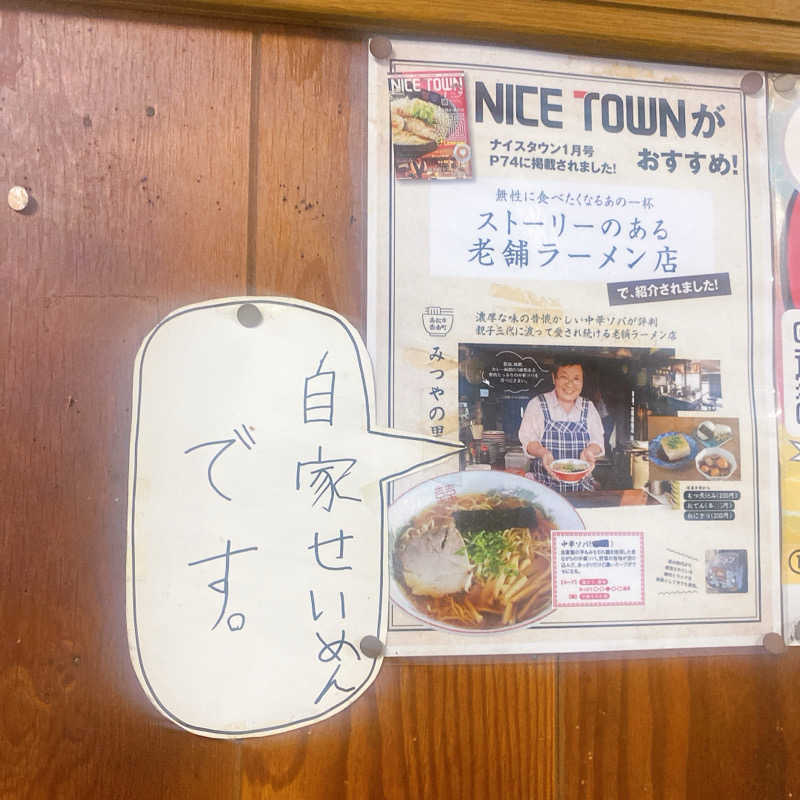 NICE TOWN
NICE TOWNが
おすすめ!
ナイスタウン1月号
P74に掲載されました!
無性に食べたくなるあの一杯
ストーリーのある
老舗ラーメン店
で、紹介されました!
濃厚な味の昔懐かしい中華ソバが評判
親子三代に渡って愛され続ける老舗ラーメン店
高松市
みつやの里
自家せいめん
です。
もつ煮込み(200円)
おでん(本 円)
おにぎり(200円)
中華ソバ